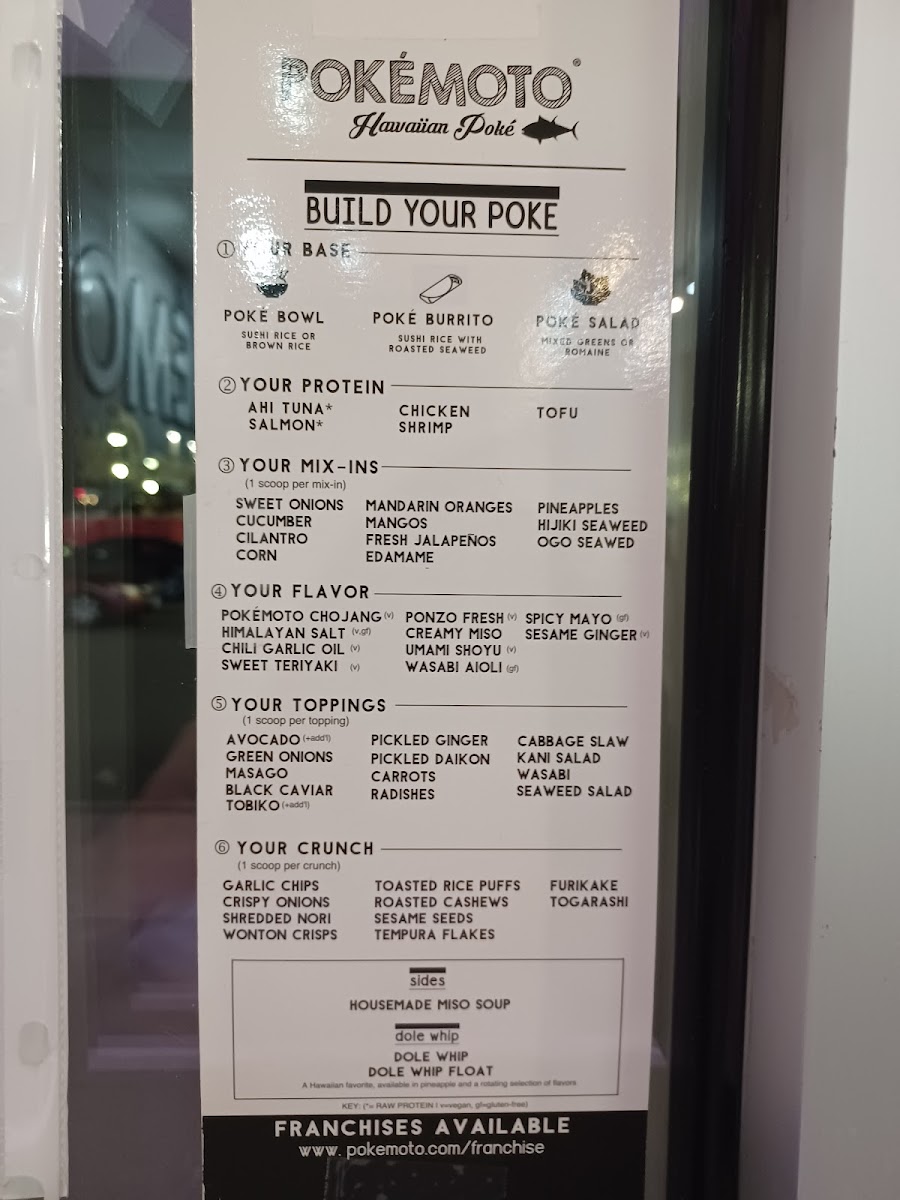 POKÉMOTO®
Hawaiian Poké
BUILD YOUR POKE
① YOUR BASE
POKÉ BOWL
SUSHI RICE OR
BROWN RICE
POKÉ BURRITO
SUSHI RICE WITH
ROASTED SEAWEED
POKÉ SALAD
MIXED GREENS OR
ROMAINE
② YOUR PROTEIN
AHI TUNA*
SALMON*
CHICKEN
SHRIMP
TOFU
③ YOUR MIX-INS
(1 scoop per mix-in)
SWEET ONIONS
CUCUMBER
CILANTRO
CORN
MANDARIN ORANGES
MANGOS
FRESH JALAPEÑOS
EDAMAME
PINEAPPLES
HIJIKI SEAWEED
OGO SEAWED
④ YOUR FLAVOR
POKÉMOTO CHOJANG (v)
HIMALAYAN SALT (v,gf)
CHILI GARLIC OIL (v)
SWEET TERIYAKI (v)
PONZO FRESH (v)
CREAMY MISO
UMAMI SHOYU (v)
WASABI AIOLI (gf)
SPICY MAYO (gf)
SESAME GINGER (v)
⑤ YOUR TOPPINGS
(1 scoop per topping)
AVOCADO (+add'l)
GREEN ONIONS
MASAGO
BLACK CAVIAR
TOBIKO (+add'l)
PICKLED GINGER
PICKLED DAIKON
CARROTS
RADISHES
CABBAGE SLAW
KANI SALAD
WASABI
SEAWEED SALAD
⑥ YOUR CRUNCH
(1 scoop per crunch)
GARLIC CHIPS
CRISPY ONIONS
SHREDDED NORI
WONTON CRISPS
TOASTED RICE PUFFS
ROASTED CASHEWS
SESAME SEEDS
TEMPURA FLAKES
FURIKAKE
TOGARASHI
sides
HOUSEMADE MISO SOUP
dole whip
DOLE WHIP
DOLE WHIP FLOAT
A Hawaiian favorite, available in pineapple and a rotating selection of flavors
KEY: (*= RAW PROTEIN | v=vegan, gf=gluten-free)
FRANCHISES AVAILABLE
www. pokemoto.com/franchise